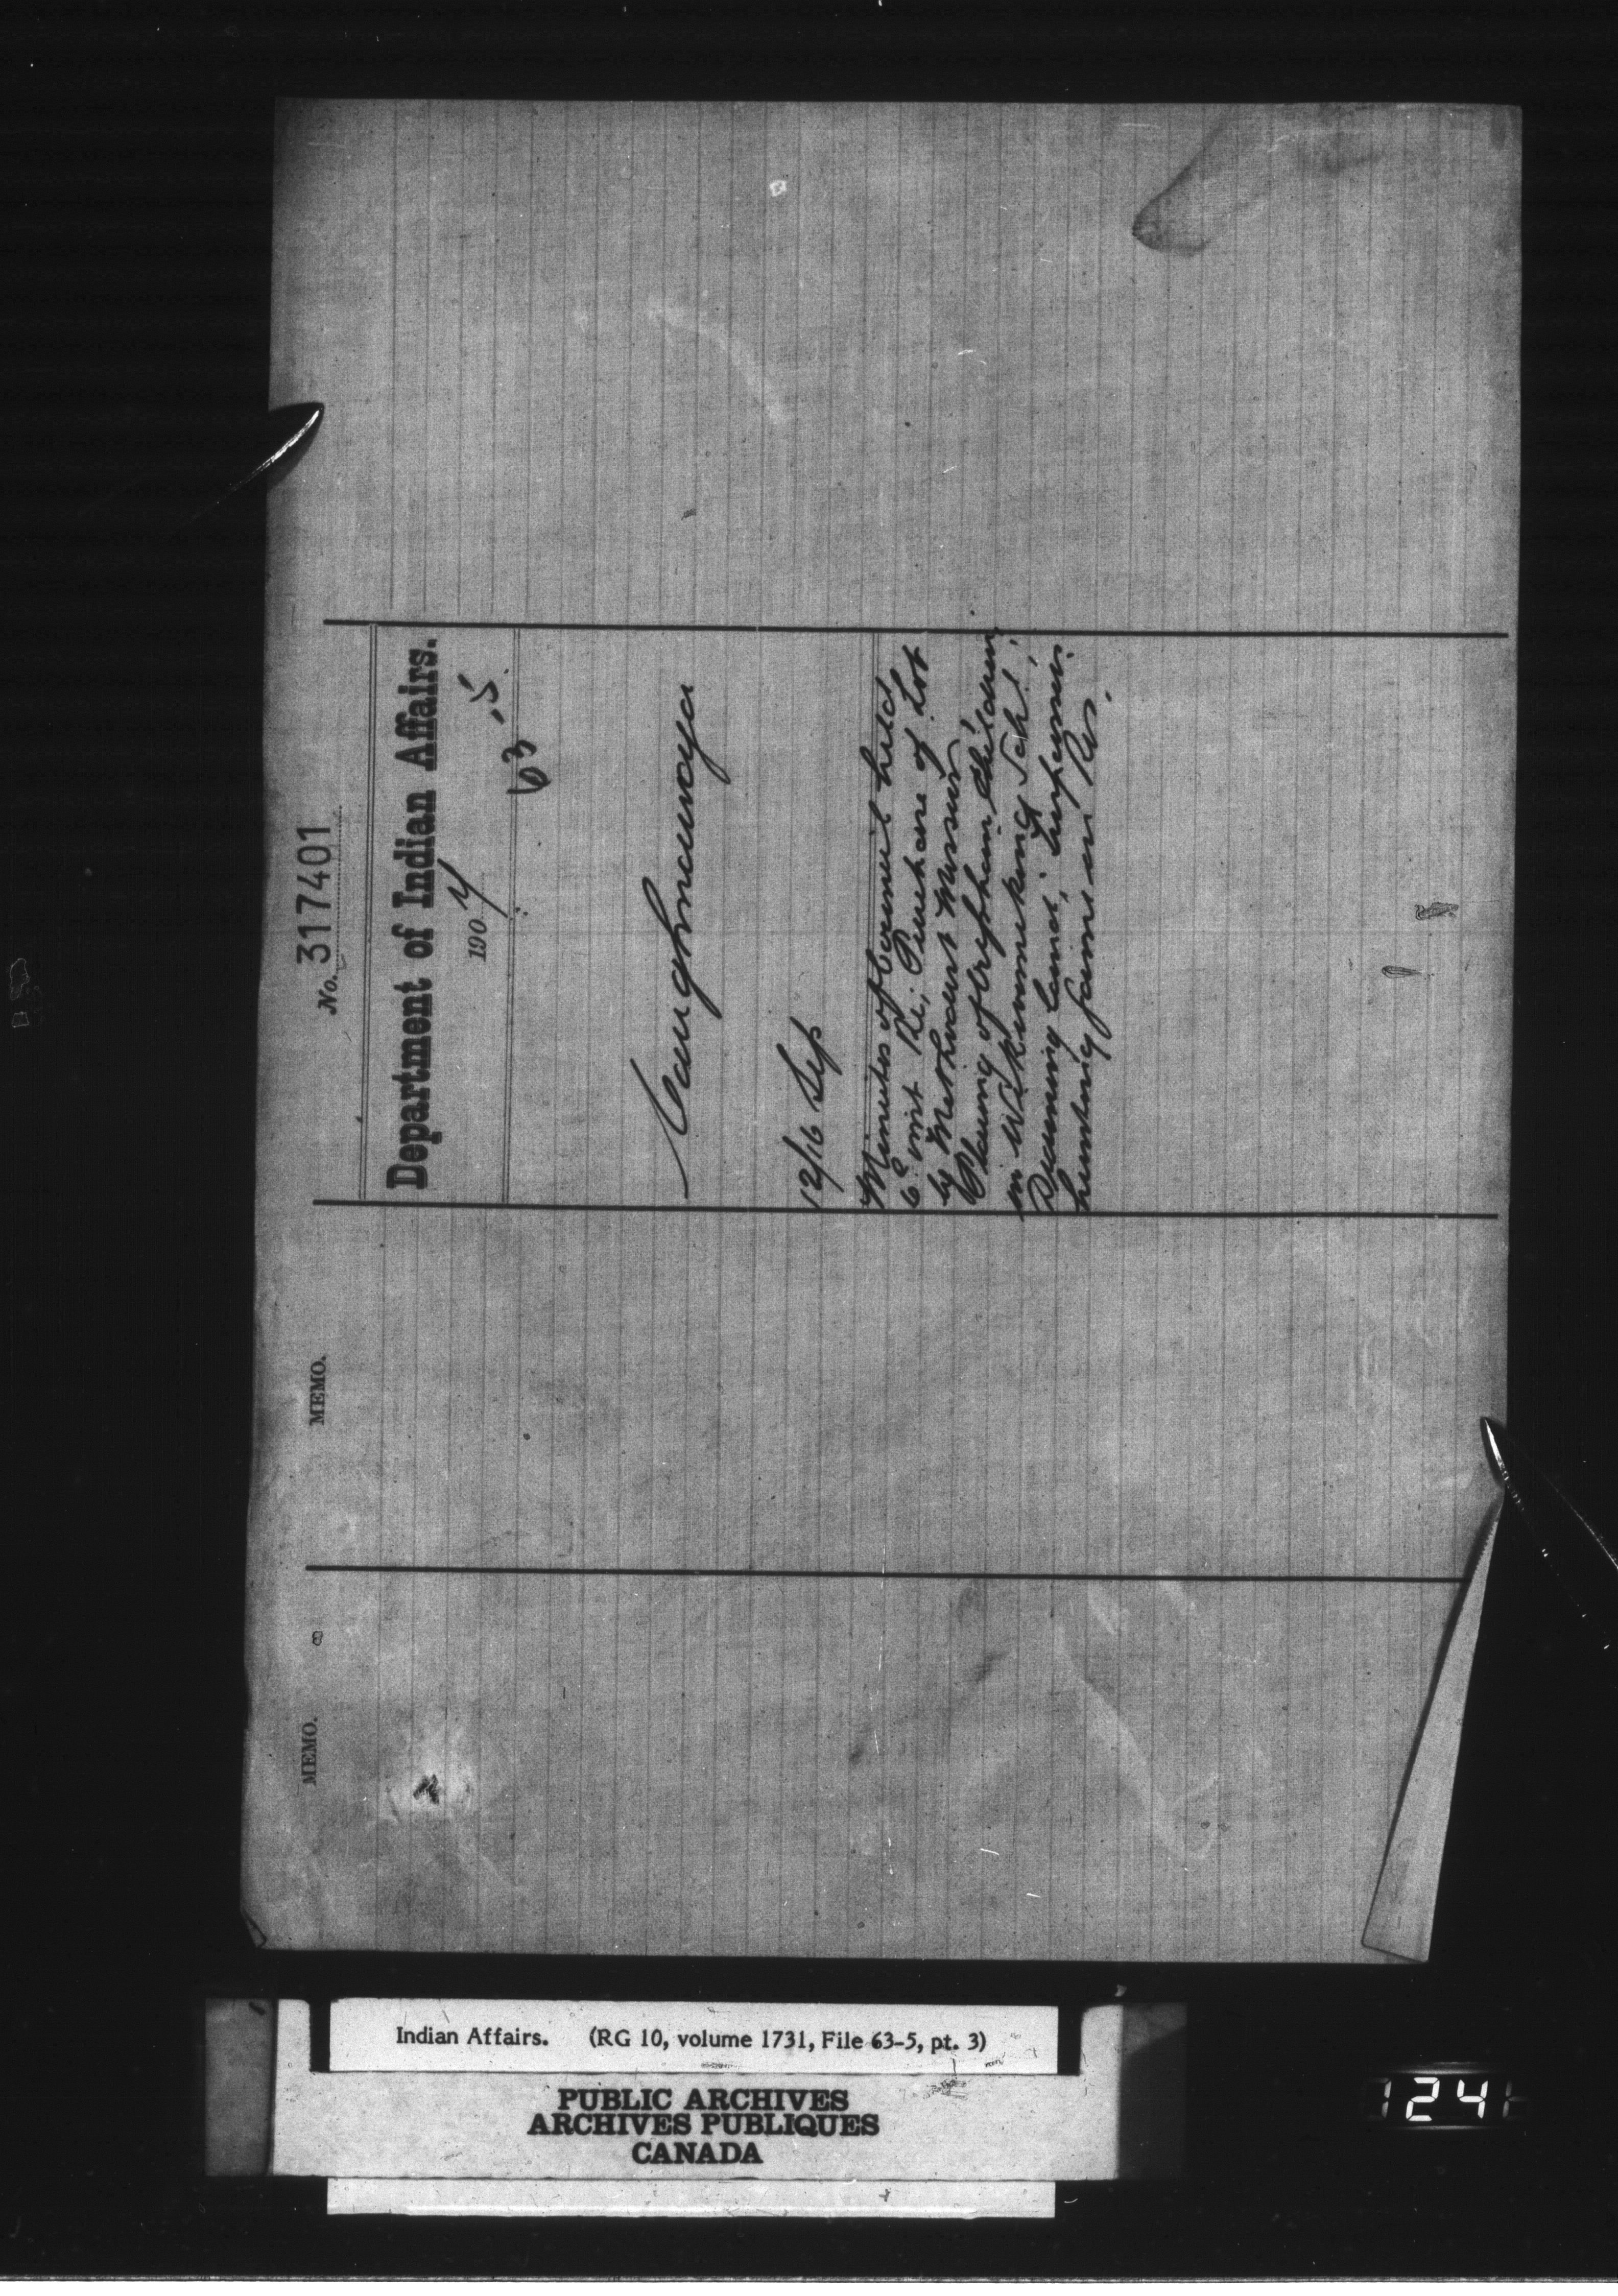 No. 317401
Department of Indian Affairs.
1907
63-5.
Caughnawaga
12/16 Sep
Minutes of Council held
6th inst Re; Purchase of Lot
by Methodist Mission,
Placing of orphan children
in Wikwemikong Sch!,
Draining land, Trespassers
hunting game on Res.
MEMO.
MEMO.
Indian Affairs. (RG 10, volume 1731, File 63-5, pt. 3)
PUBLIC ARCHIVES
ARCHIVES PUBLIQUES
CANADA
124